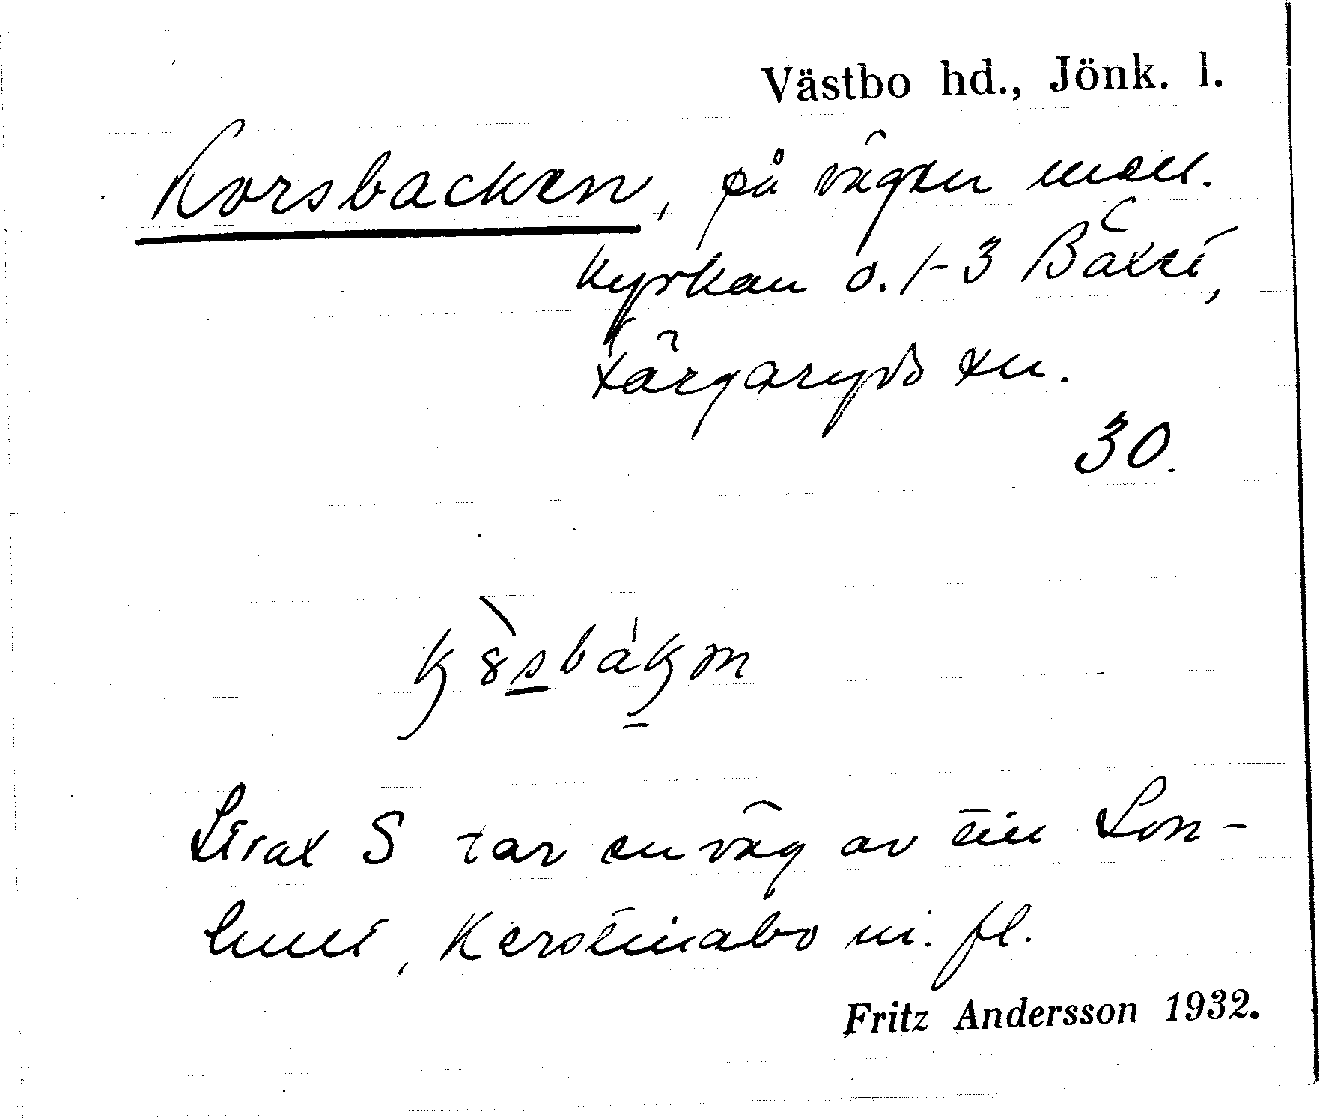 Västbo hd., Jönk. l.
Korsbacken, på vägen mell.
kyrkan o. 1-3 Bäxt,
Färgaryds sn.
30.
Strax S tar en väg av till Lon-
hult, Kerstinabo m. fl.
Fritz Andersson 1932.